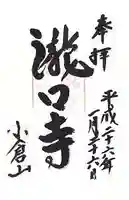 奉拝
平成二十六年
一月二十六日
瀧口寺
小倉山